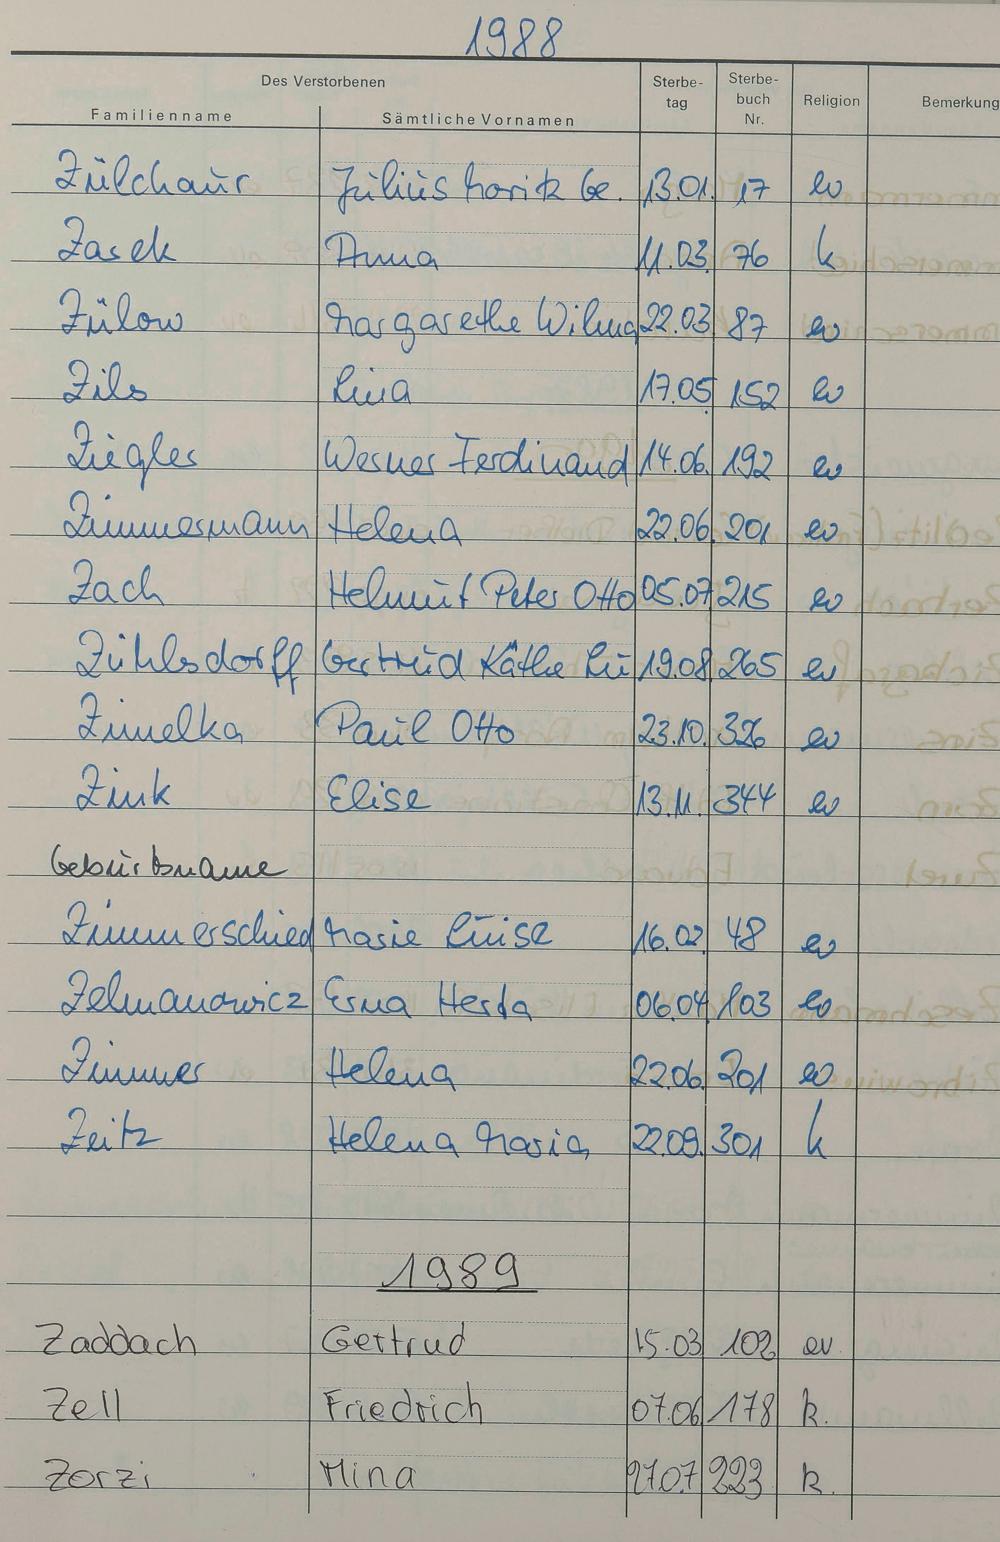 1988
Des Verstorbenen Sterbe- Sterbe-
tag buch Religion Bemerkung
Familienname Sämtliche Vornamen Nr.
Zülchaur Julius Moritz Ge. 13.01. 17 ev
Zasek Anna 11.03. 76 k
Zülow Margarethe Wilma 22.03. 87 ev
Zils Lina 17.05 152 ev
Ziegler Werner Ferdinand 14.06. 192 ev
Zimmermann Helena 22.06. 201 ev
Zach Helmut Peter Otto 05.07 215 ev
Zühlsdorff Gertrud Käthe Lu 19.08 265 ev
Zimelka Paul Otto 23.10. 326 ev
Zink Elise 13.11. 344 ev
Geburtsname
Zimmerschied Marie Luise 16.02 48 ev
Zelmanowicz Erna Herta 06.04 103 ev
Zimmer Helena 22.06. 201 ev
Zeitz Helena Maria 22.09. 301 k
1989
Zaddach Gertrud 15.03 102 ev.
Zell Friedrich 07.06 178 k.
Zorzi Mina 27.07 223 k.